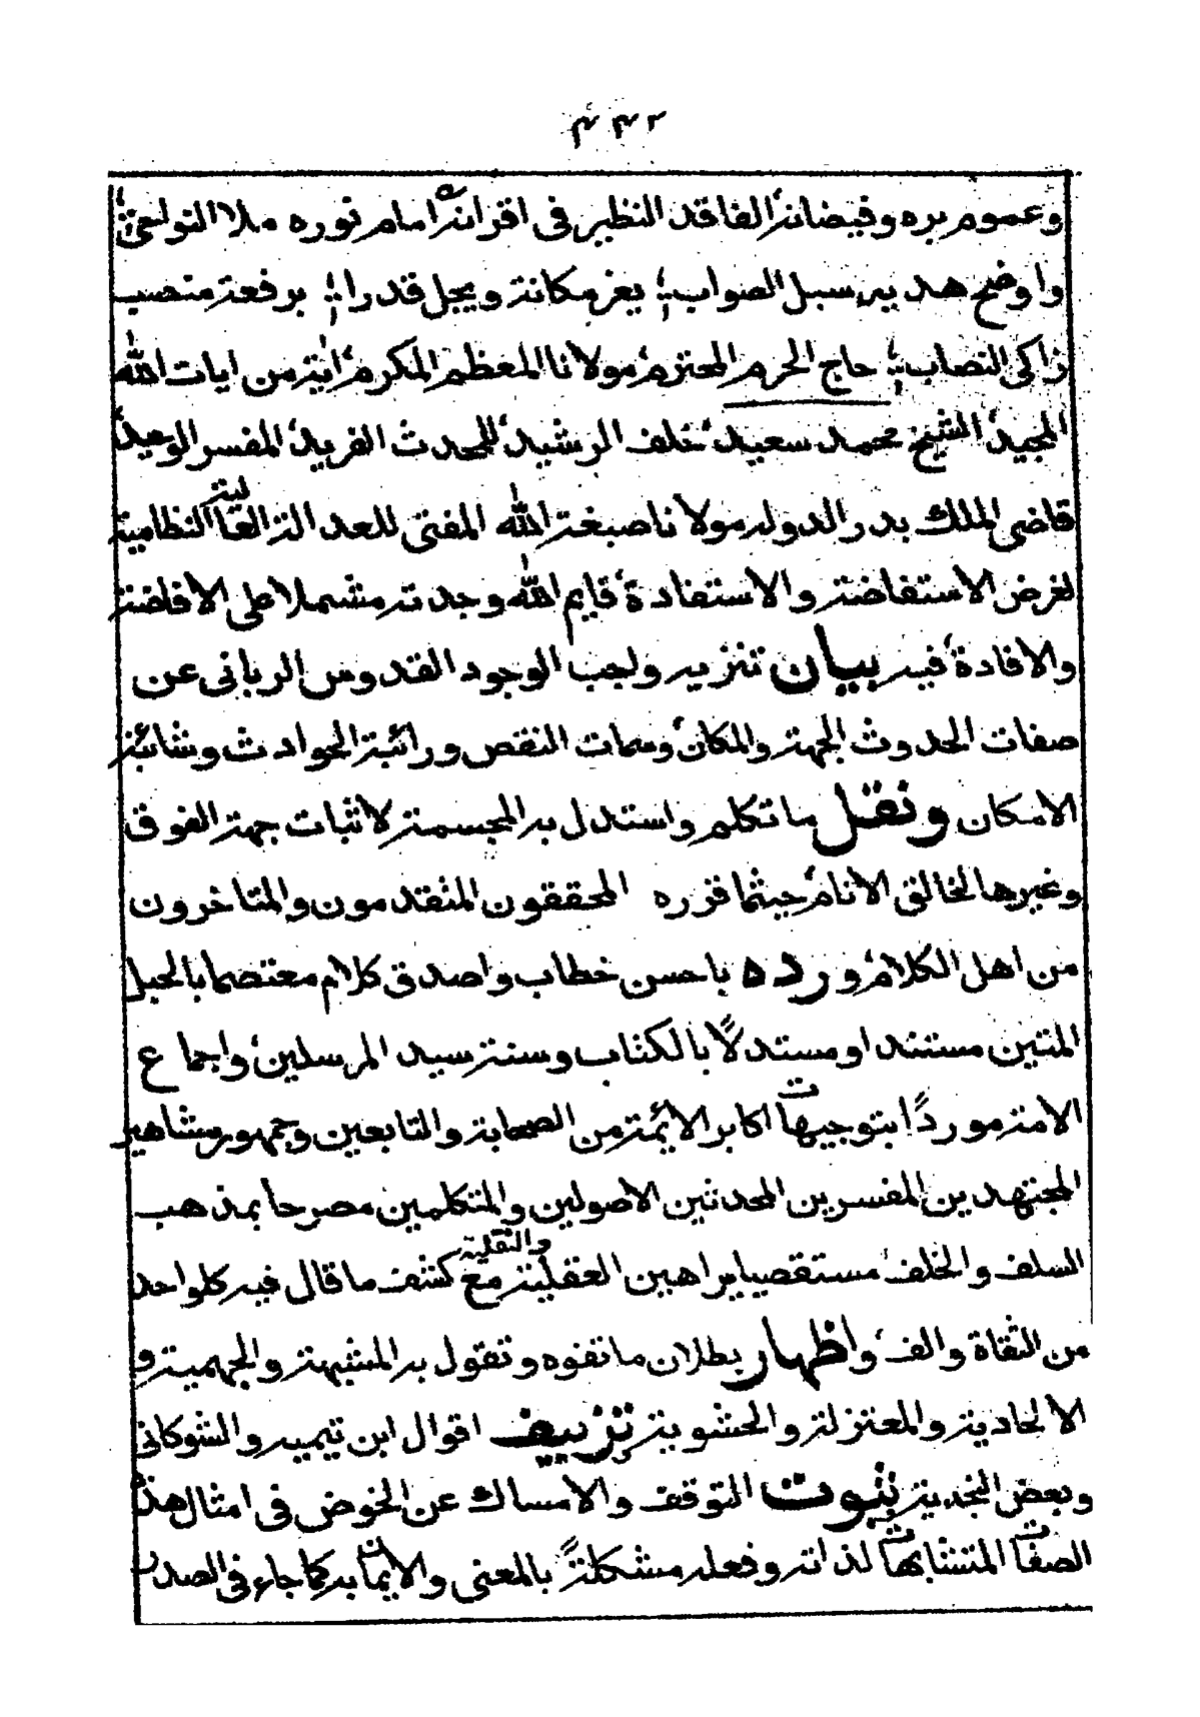 ٤٤٢
وعموم بره وفيضانه الفاقد النظير فى اقرانه امام نوره ملا النواحى
واوضح هديه سبل الصواب؛ يعز مكانة ويجل قدرا؛ برفعة منصب
زاكى النصاب؛ حاج الحرم المحترم، مولانا المعظم المكرم، اية من ايات الله
المجيد، الشيخ محمد سعيد، خلف الرشيد، للمحدث الفريد، المفسر الوحيد،
قاضى الملك بدر الدوله مولانا صبغة الله المفتى للعدالة العالية النظامية
لغرض الاستفاضة والاستفادة، فايم الله وجدته مشتملا على الافاضة
والافادة، فيه بيان تنزيه واجب الوجود القدوس الربانى عن
صفات الحدوث الجهة والمكان، وسمات النقص ورائبة الحوادث وشائبة
الامكان ونقل ما تكلم واستدل به المجسمة لاثبات جهة الفوق
وغيرها لخالق الانام، حيثما قرره المحققون المتقدمون والمتاخرون
من اهل الكلام، ورده باحسن خطاب واصدق كلام معتصما بالحبل
المتين مستندا ومستدلاً بالكتاب وسنة سيد المرسلين، واجماع
الامة موردًا بتوجيهات اكابر الائمة من الصحابة والتابعين وجمهور مشاهير
المجتهدين المفسرين المحدثين الاصولين والمتكلمين مصرحا بمذهب
السلف والخلف، مستقصيا براهين العقلية والنقلية مع كشف ما قال فيه كلواحد
من الثقاة والف، واظهار بطلان ما تفوه وتقول به المشبهة والجهمية و
الالحادية والمعتزلة والحشوية تزييف اقوال ابن تيميه والشوكانى
وبعض النجدية بثبوت التوقف والامساك عن الخوض فى امثال هذه
الصفات المتشابهات لذاته وفعله مشكلةً بالمعنى والايمان به كما جاء فى الصدر